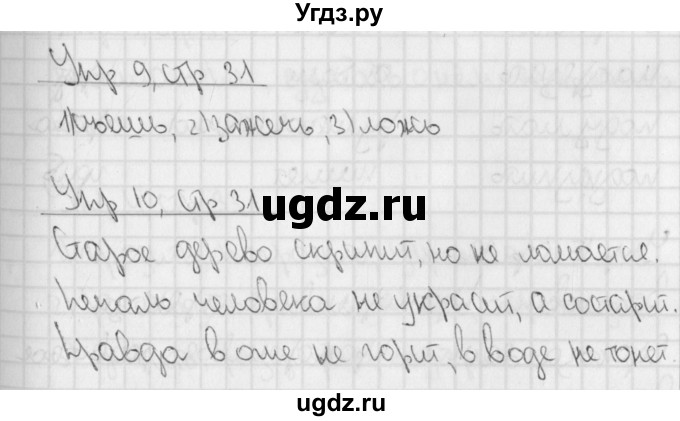 Угдз.ру
Упр 9, стр 31
1) съешь, 2) зажечь, 3) ложь
Упр 10, стр 31
ugdz.ru
Старое дерево скрипит, но не ломается.
Печаль человека не украсит, а состарит.
Правда в огне не горит, в воде не тонет.
ugdz.ru